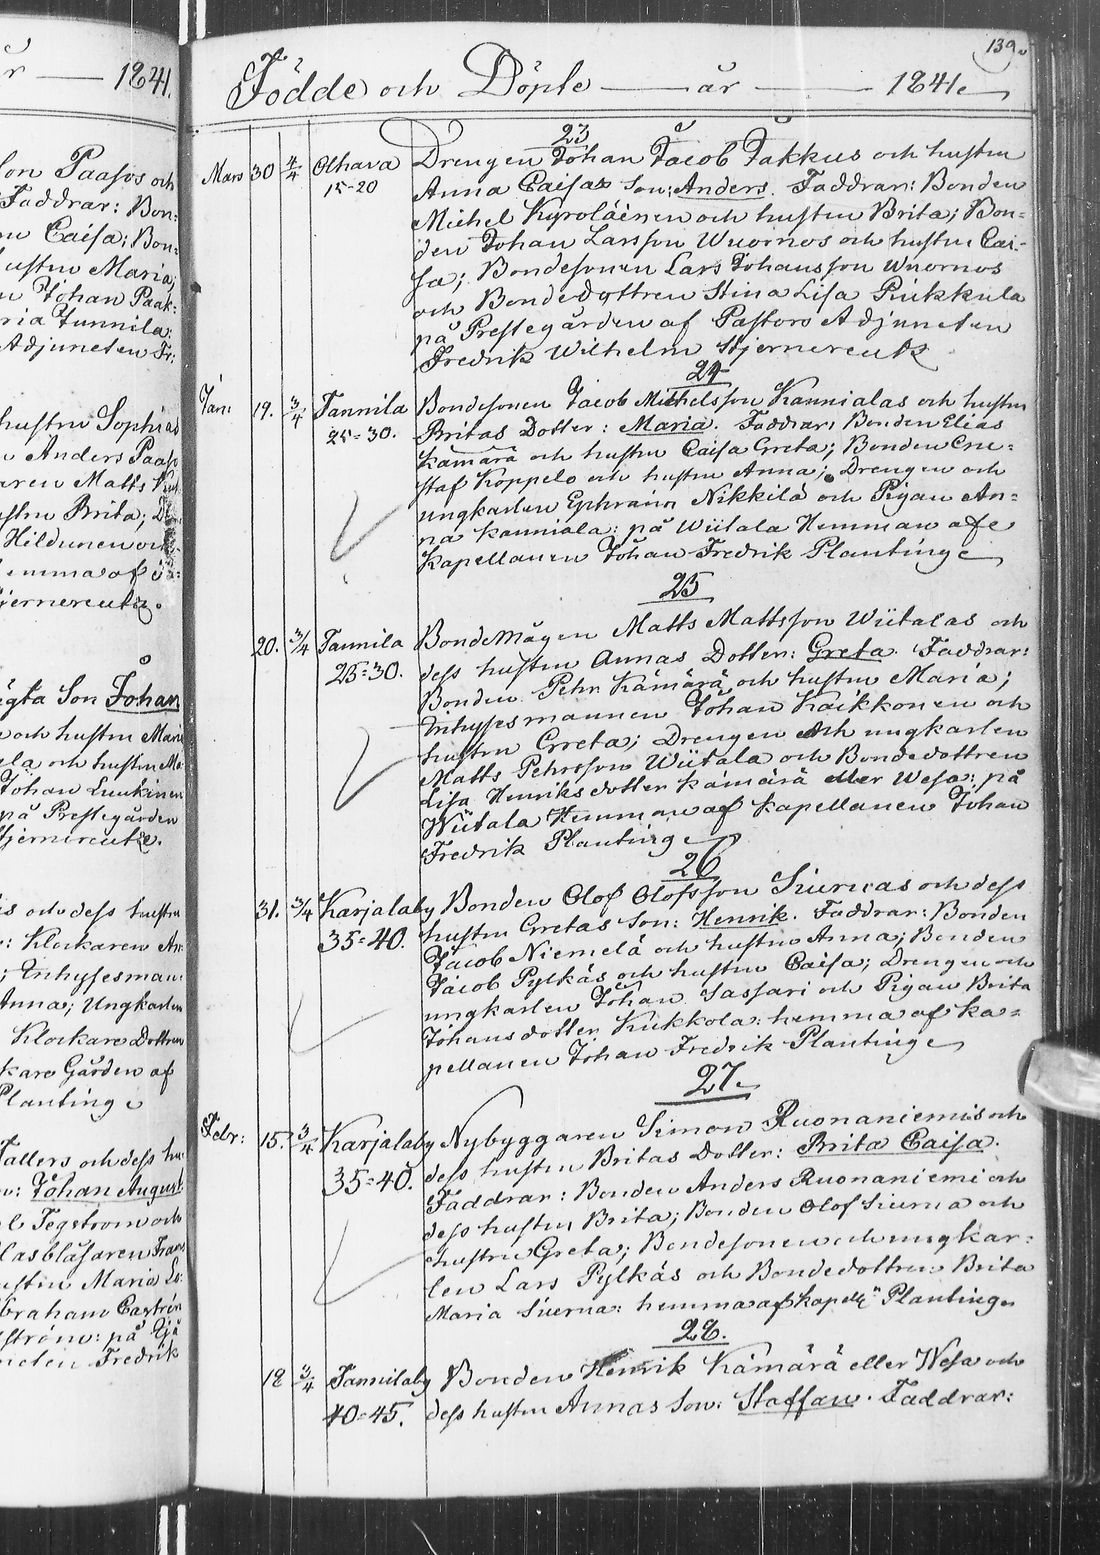 r — 1841.
139.
Födde och Döpte — år — 1841.
son Paasos och
Faddrar: Bon=
Caisa; Bon=
hustru Maria;
Johan Paak=
ria Junnila:
Adjuncten Fr:
hustru Sophias
Anders Paaso
aren Matts
ustru Brita;
Hildunen och
emma af
jernereutz.
ägta Son Johan
och hustru Maria
la och hustru Ma
Johan Luukinen
på Prestegården
tjernereutz.
s och dess hustru
: Klockaren An
; Inhysesman:
Anna; Ungkarlen
Klockare Dottren
kare Gården af
Planting
Tallers och dess hu
: Johan August
Tegstrom och
lasblåsaren Frans
ustru Maria
braham Castrén
ström: på
ncten Fredrik
23
Mars 30 4/4 Olhava Drengen Johan Jacob Jakkus och hustru
15-20 Anna Caisas Son: Anders. Faddrar: Bonden
Michel Kyroläinen och hustru Brita; Bon=
den Johan Larsson Wuornos och hustru Cai=
sa; Bondesonen Lars Johansson Wuornos
och Bondedottren Stina Lisa Pukkula
på Prestegården af Pastors Adjuncten
Fredrik Wilhelm Stjernereutz
24
Jan: 19. 3/4 Tannila Bondesonen Jacob Michelsson Kannialas och hustru
25=30. Britas Dotter: Maria. Faddrar: Bonden Elias
Kämärä och hustru Caisa Greta; Bonden Gu=
staf Koppelo och hustru Anna; Drengen och
ungkarlen Ephraim Nikkilä och Pigan An=
na Kanniala: på Wiitala Hemman af
Kapellanen Johan Fredrik Planting
25
20. 3/4 Tannila Bonde Mågen Matts Mattsson Wiitalas och
25=30. dess hustru Annas Dotter: Greta. Faddrar:
Bonden Pehr Kämärä och hustru Maria;
Inhysesmannen Johan Kaikkonen och
hustru Greta; Drengen och ungkarlen
Matts Pehrsson Wiitala och Bondedottren
Lisa Henriksdotter Kämärä eller Wesa: på
Wiitala Hemman af Kapellanen Johan
Fredrik Planting
26
31. 3/4 Karjalaby Bonden Olof Olofsson Siurnas och dess
35=40. hustru Gretas Son: Henrik. Faddrar: Bonden
Jacob Niemelä och hustru Anna; Bonden
Jacob Pylkäs och hustru Caisa; Drengen och
ungkarlen Johan Sassari och Pigan Brita
Johansdotter Kukkola: hemma af Ka=
pellanen Johan Fredrik Planting
27.
Febr: 15. 3/4 Karjalaby Nybyggaren Simon Ruonaniemis och
35=40. dess hustru Britas Dotter: Brita Caisa.
Faddrar: Bonden Anders Ruonaniemi och
dess hustru Brita; Bonden Olof Siurna och
hustru Greta; Bondesonen och ungkar=
len Lars Pylkäs och Bondedottren Brita
Maria Siurna: hemma af Kapell:n Planting
28.
18 3/4 Tannilaby Bonden Henrik Kämärä eller Wesa och
40=45. dess hustru Annas Son: Staffan. Faddrar: